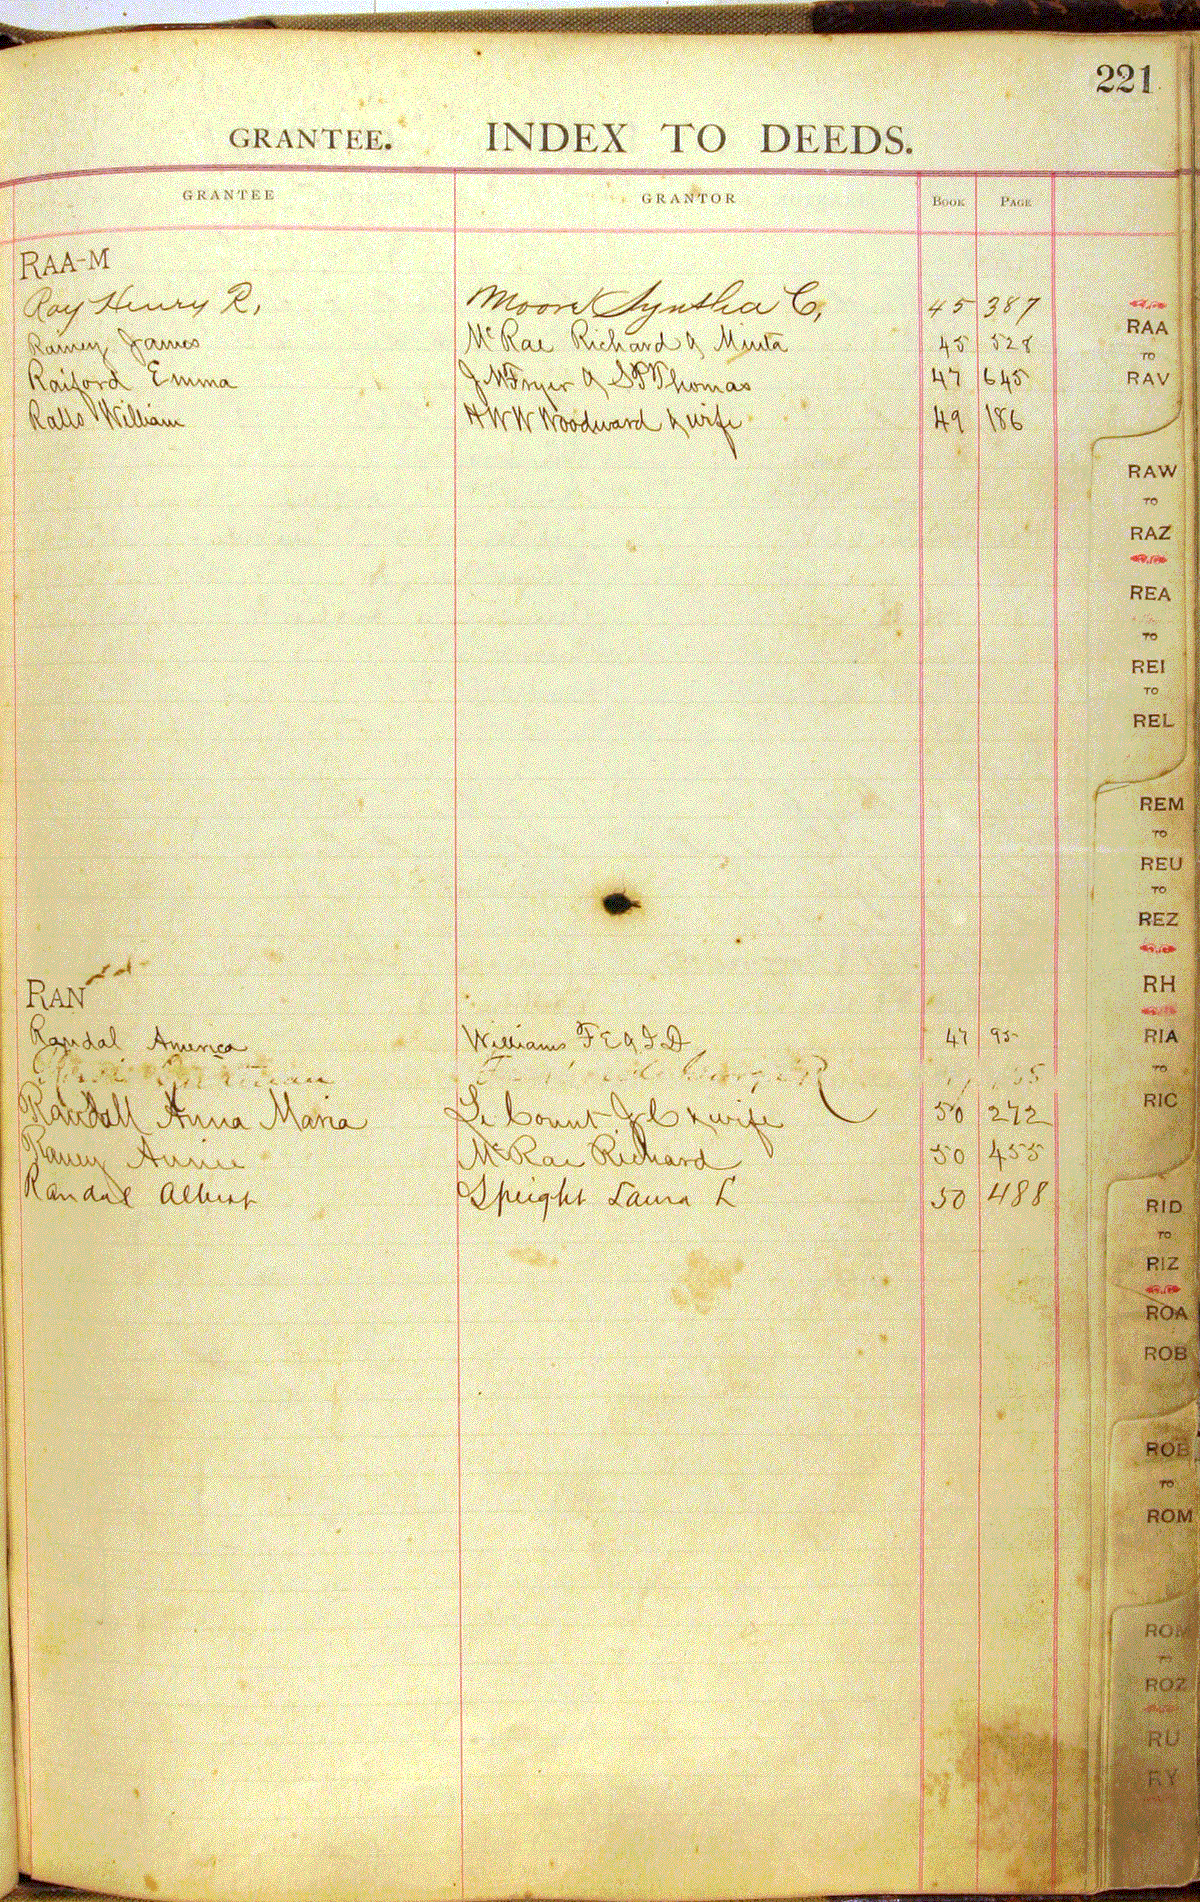 221
GRANTEE. INDEX TO DEEDS.
GRANTEE GRANTOR BOOK PAGE
RAA-M
Ray Henry R, Moore Synthia C, 45 387
Rainey James McRae Richard & Minta 45 528
Raiford Emma J M Fryer & S P Thomas 47 645
Ralls William H W W Woodward & wife 49 186
RAN
Randal America Williams F E & J D 47 95
Randall Anna Maria Le Count J C & wife 50 272
Raney Annie McRae Richard 50 455
Randal Albert Speight Laura L 50 488
RAA
TO
RAV
RAW
TO
RAZ
REA
TO
REI
TO
REL
REM
TO
REU
TO
REZ
RH
RIA
TO
RIC
RID
TO
RIZ
ROA
ROB
ROE
TO
ROM
RON
TO
ROZ
RU
RY